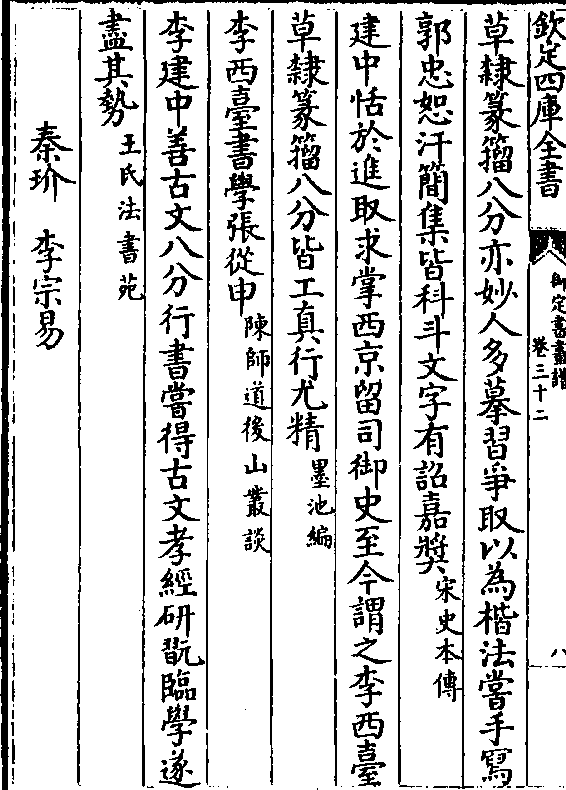 欽定四庫全書
御定書畫譜
卷三十二
八
草隸篆籀八分亦妙人多摹習爭取以為楷法嘗手寫
郭忠恕汗簡集皆科斗文字有詔嘉奬宋史本傳
建中恬於進取求掌西京留司御史至今謂之李西臺
草隸篆籀八分皆工真行尤精墨池編
李西臺書學張從申陳師道後山叢談
李建中善古文八分行書嘗得古文孝經研翫臨學遂
盡其勢王氏法書苑
秦玠　李宗易